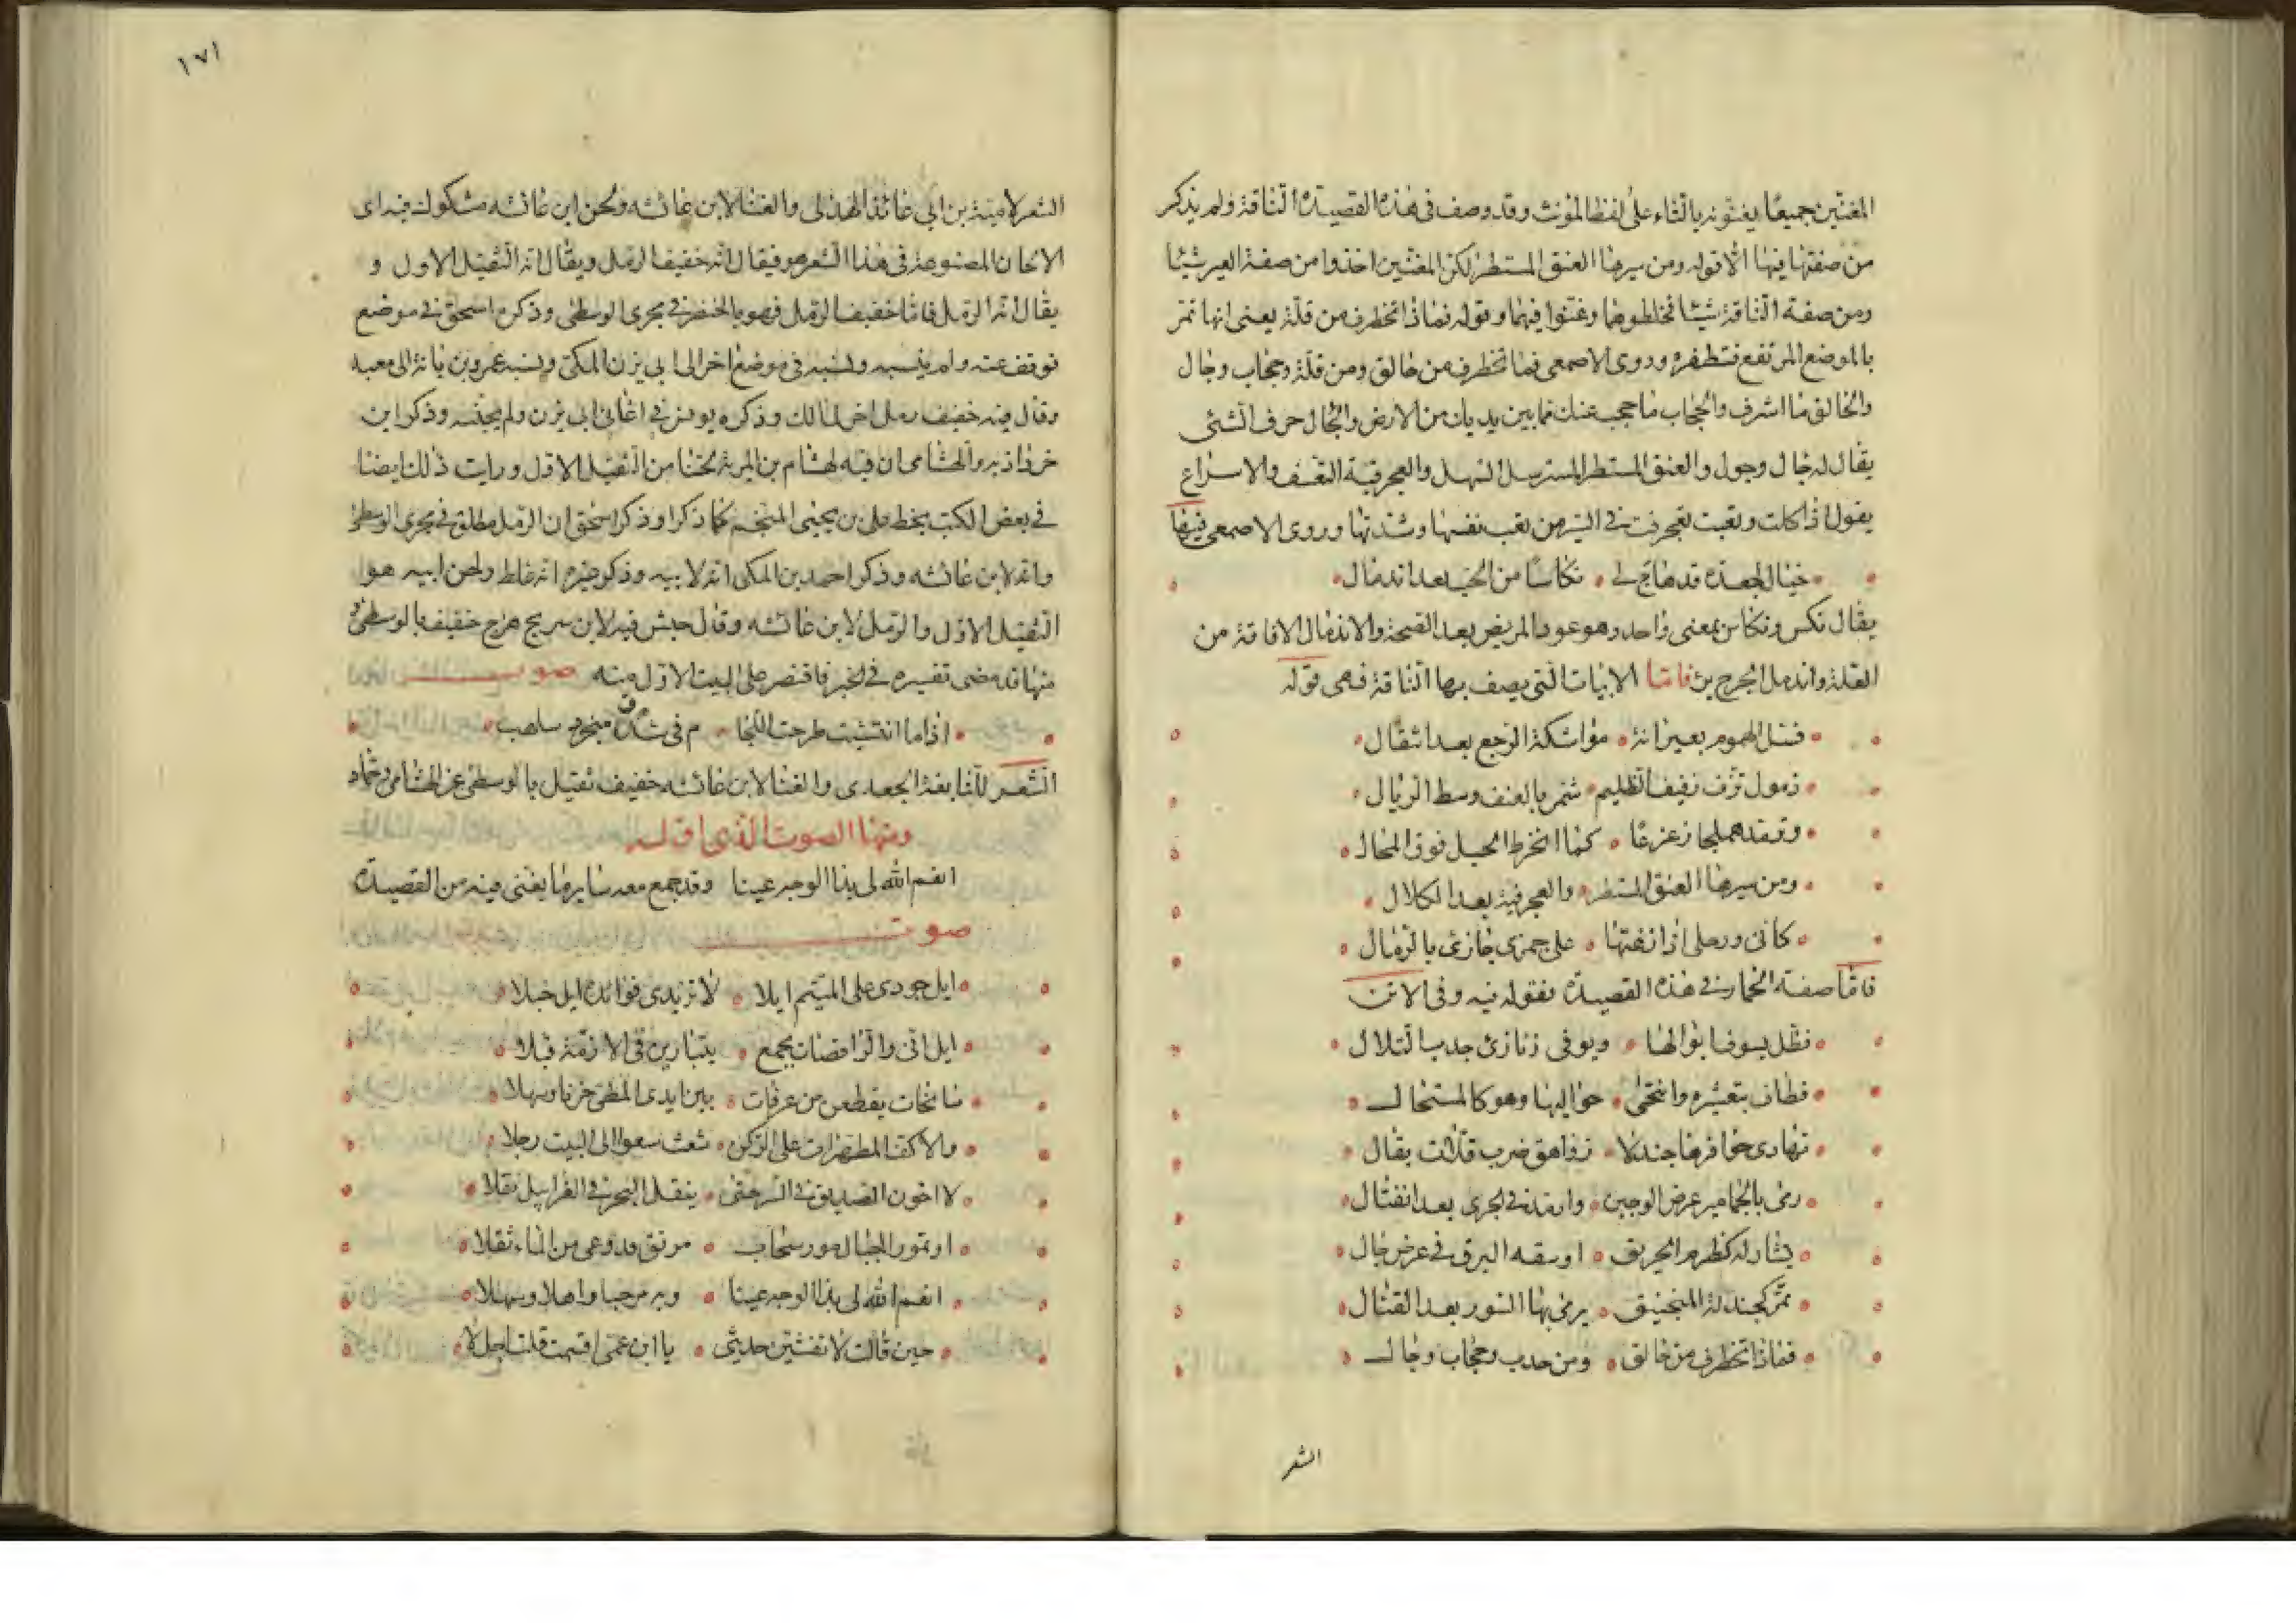 المغنين جميعا يغنونه بالتاء على لفظ المؤنث وقد وصف فى هذه القصيدة الناقة ولم يذكر
من صفتها فيها الا قوله ومن سيرها العنق المستطر لكن المغنين اخذوا من صفة العير شيئا
ومن صفة الناقة شيئا فخلطوهما وغنوا فيهما وقوله فماذا تخطرف من قلة يعنى انها تمر
بالموضع المرتفع فتطفره وروى الاصمعى فما تخطرف من حالق ومن قلة وحجاب وجال
والحالق ما اشرف والحجاب ما حجب عنك ما بين يديك من الارض والجال حرف الشئ
يقال له جال وجول والعنق المستطر المسترسل السهل والعجرفية التعسف والاسراع
يقول اذا كلت وتعبت تعجرفت فى السير من تعب نفسها وشدتها وروى الاصمعى فيها
خيال لجعدة قد هاج لى نكاسا من الحب بعد اندمال
يقال نكس ونكاس بمعنى واحد وهو عود المريض بعد الصحة والاندمال الافاقة من
العلة واندمل الجرح برئ فاما الابيات التى يصف بها الناقة فهى قوله
فسل الهموم بعيرانة مواشكة الرجع بعد انتقال
ذمول تزف زفيف الظليم شمر بالعنف وسط الريال
وترمد هملجة زعزعا كما انخرط الحبل فوق المحال
ومن سيرها العنق المستطر والعجرفية بعد الكلال
كانى ورحلى اذا زعتها على جمزى جازئ بالرمال
فاما صفة الحمار فى هذه القصيدة فقوله فيه وفى الاتن
فظل يسوف ابوالها ويوفى زنازئ حدب التلال
فطاف بتعشيره وانتحى جواليها وهو كالمستجال
تهادى حوافرها جندلا زواهق ضرب قلات بقال
رمى بالجراميز عرض الوجين وارمد فى الجرى بعد انفتال
بشاو له كضرم الحريق او شقه البرق فى عرض خال
تمر كجندلة المنجنيق يرمى بها السور بعد القتال
فماذا تخطرف من حالق ومن حدب وحجاب وجال
الشعر
١٧١
الشعر لامية بن ابى عائذ الهذلى والغنا لابن عائشه ولحن ابن عائشه مشكوك فيه اى
الالحان المصنوعة فى هذا الشعر هو فيقال انه خفيف الرمل ويقال انه الثقيل الاول و
يقال انه الرمل فاما خفيف الرمل فهو بالخنصر فى مجرى الوسطى وذكره اسحق فى موضع
فوقف عنه ولم ينسبه ونسبه فى موضع اخر الى ابن يزن المكى ونسبه عمرو بن بانة الى معبد
وقال فيه خفيف رمل اخر لمالك وذكره يونس فى اغانى ابى يزن ولم يجنسه وذكر ابن
خرداذبه والهشامى ان فيه لهشام بن المرية لحنا من الثقيل الاول ورايت ذلك ايضا
فى بعض الكتب بخط على بن يحيى المنجم كما ذكرا وذكر اسحق ان الرمل مطلق فى مجرى الوسطى
وانه لابن عائشه وذكر احمد بن المكى انه لابيه وذكر غيره انه غلط ولحن ابيه هو
الثقيل الاول والرمل لابن عائشه وقال حبش فيه لابن سريج هزج خفيف بالوسطى
منها قد مضى تفسيره فى الخبر فاقتصر على البيت الاول منه صوت
اذا ما انتشيت طرحت اللجا م فى شدق منجرد سلهب
الشعر للنابغة الجعدى والغنا لابن عائشه خفيف ثقيل بالوسطى عن الهشامى وحماد
ومنها الصوت الذى اوله
انعم الله لى بذا الوجه عينا وقد جمع معه سايرما يغنى فيه من القصيدة
صوت
ايل جودى على المتيم ايلا لا تزيدى فؤاده ايل خبلا
ايل انى والراقصات بجمع يتبارين فى الازمة فتلا
سانحات يقطعن من عرفات بين ايدى المطى حزنا وسهلا
والاكف المطهرات على الركن شعث سعوا الى البيت رجلا
لا اخون الصديق فى السر حتى ينقل البحر فى الغرابيل نقلا
او تمور الجبال مور سحاب مرتق قد وعى من الماء ثقلا
انعم الله لى بذا الوجه عينا وبه مرحبا واهلا وسهلا
حين قالت لا تفشين حديثى يا ابن عمى اقسمت قلت اجل لا